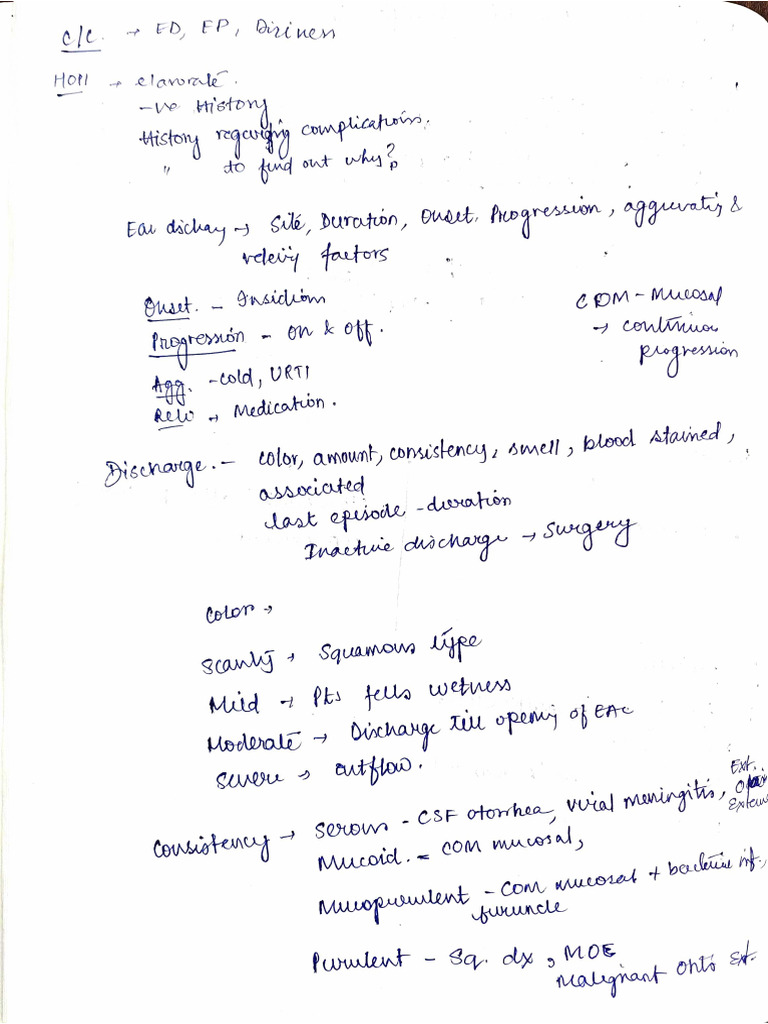 C/C. → ED, EP, Diziness
HOPI → elavorate.
-ve History
History regarding complications.
" to find out why?
Ear dischay → Site, Duration, Onset. Progression, aggrevatig &
relevig factors
Onset. - Insidiom
Progression - on & off.
Agg. - cold, URTI
Relv → Medication.
COM - Mucosal
→ continuos
progression
Discharge. - color, amount, consistency, smell, blood stained,
associated
last episode - duration
Inactive discharge → surgery
color →
Scanty → Squamous type
Mild → Pts fells wetness
Moderate → Discharge till openig of EAC
Severe → outflow.
Consistency → serous - CSF otorrhea, viral meningitis, Ext.
Mucoid. - COM mucosal,
Mucopurulent - COM mucosal + bacterial inf,
furuncle
Purulent - Sq. dx, MOE
Malignant Ext.